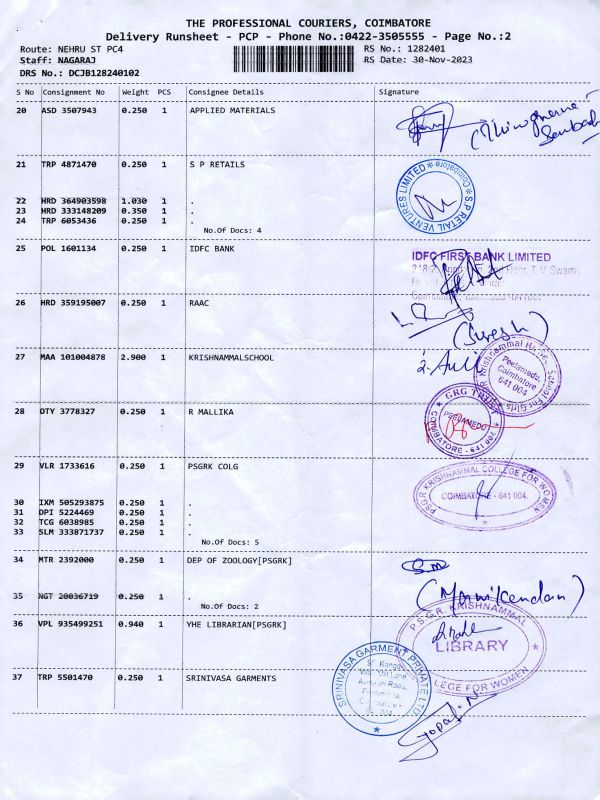 THE PROFESSIONAL COURIERS, COIMBATORE
Delivery Runsheet - PCP - Phone No.:0422-3505555 - Page No.:2
Route: NEHRU ST PC4 RS No.: 1282401
Staff: NAGARAJ RS Date: 30-Nov-2023
DRS No.: DCJB128240102
S No Consignment No Weight PCS Consignee Details Signature
20 ASD 3507943 0.250 1 APPLIED MATERIALS
21 TRP 4871470 0.250 1 S P RETAILS
S.P RETAIL VENTURES LIMITED * Coimbatore *
22 HRD 364903598 1.030 1 .
23 HRD 333148209 0.350 1 .
24 TRP 6053436 0.250 1 .
No.Of Docs: 4
25 POL 1601134 0.250 1 IDFC BANK
IDFC FIRST BANK LIMITED
T.V. Swamy
26 HRD 359195007 0.250 1 RAAC
(Suresh)
27 MAA 101004878 2.900 1 KRISHNAMMALSCHOOL
Peelamedu, Coimbatore 641 004
28 OTY 3778327 0.250 1 R MALLIKA
GRG TRUST PEELAMEDU COIMBATORE - 641 004
29 VLR 1733616 0.250 1 PSGRK COLG
P.S.G.R. KRISHNAMMAL COLLEGE FOR WOMEN
COIMBATORE - 641 004.
30 IXM 505293875 0.250 1 .
31 DPI 5224469 0.250 1 .
32 TCG 6038985 0.250 1 .
33 SLM 333871737 0.250 1 .
No.Of Docs: 5
34 MTR 2392000 0.250 1 DEP OF ZOOLOGY[PSGRK]
35 NGT 20036719 0.250 1 .
No.Of Docs: 2
36 VPL 935499251 0.940 1 YHE LIBRARIAN[PSGRK]
P.S.G.R. KRISHNAMMAL
LIBRARY
COLLEGE FOR WOMEN
37 TRP 5501470 0.250 1 SRINIVASA GARMENTS
SRINIVASA GARMENT PRIVATE LTD
Gopal. N